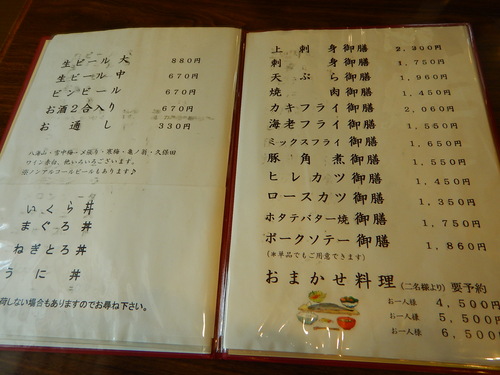 生ビール 大 880円
生ビール 中 670円
ビンビール 670円
お酒2合入り 670円
お通し 330円
八海山・雪中梅・〆張り・寒梅・亀ノ翁・久保田
ワイン赤白、他いろいろございます。
ノンアルコールビールもあります♪
いくら丼
まぐろ丼
ねぎとろ丼
うに丼
荷しない場合もありますのでお尋ね下さい。
上刺身御膳 2,200円
刺身御膳 1,750円
天ぷら御膳 1,960円
焼肉御膳 1,450円
カキフライ御膳 2,060円
海老フライ御膳 1,550円
ミックスフライ御膳 1,650円
豚角煮御膳 1,550円
ヒレカツ御膳 1,450円
ロースカツ御膳 1,350円
ホタテバター焼御膳 1,750円
ポークソテー御膳 1,860円
(※単品でもご用意できます)
おまかせ料理(二名様より)要予約
お一人様 4,500円
お一人様 5,500円
お一人様 6,500